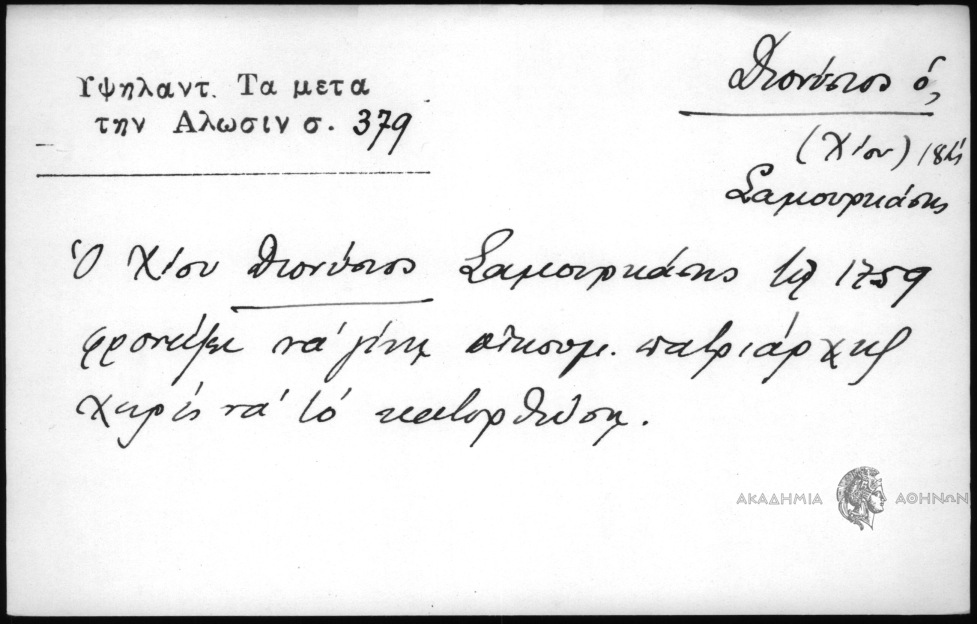 Υψηλαντ. Τα μετα
την Αλωσιν σ. 379
Διονύσιος ὁ,
(Χίου) 18ος
Σαμουρκάσης
Ὁ Χίου Διονύσιος Σαμουρκάσης τῷ 1759
νὰ γίνῃ οἰκουμ. πατριάρχης
χωρὶς νὰ τὸ κατορθώσῃ.
ΑΚΑΔΗΜΙΑ ΑΘΗΝΩΝ